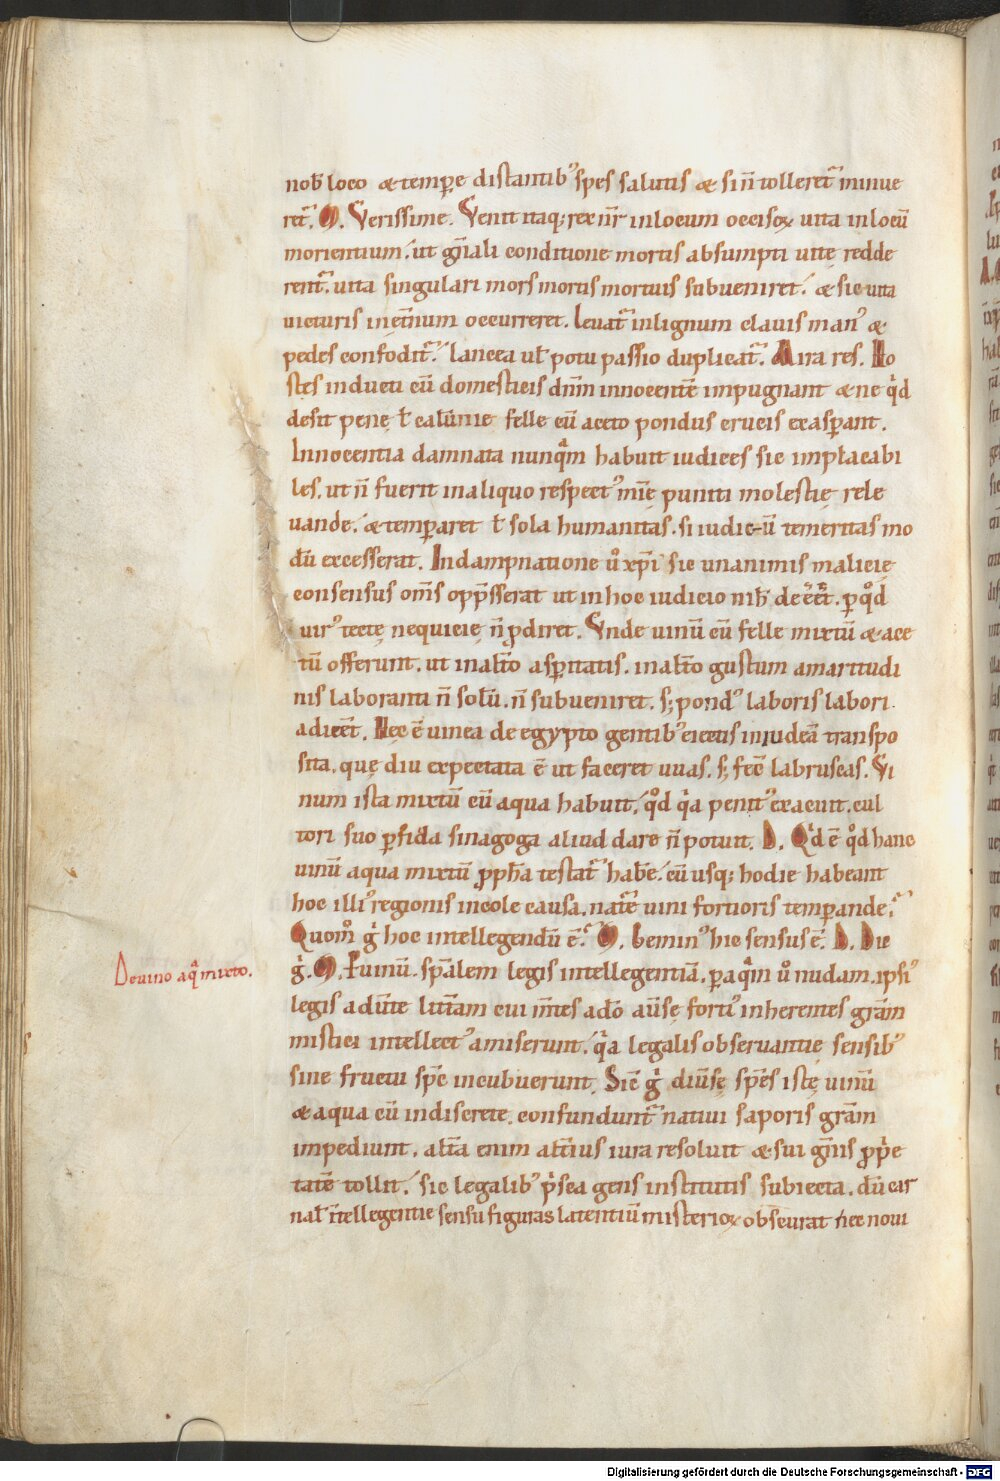 nob̄ loco & temp̄e distantib᾽ spes salutis & si n̄ tolleret᷑ minue
ret᷑. M. Verissime. Venit itaq; rex nr̄ in locum occisoꝝ uita in locū
morientium. ut gn̄ali conditione mortis absumpti uitę redde
rent᷑. uita singulari mors mortis mortuis subueniret. & sic uita
uicturis in et̄num occurreret. Leuat᷑ in lignum clauis man᾽ &
pedes confodit᷑. lancea ul̄ potu passio duplicat᷑. Mira res. Ho
stes induti cū domesticis dn̄m innocentē impugnant & ne qͥd
desit penę l̄ calūnie felle cū aceto pondus crucis exasꝑant.
Innocentia damnata nunqͣm habuit iudices sic implacabi
les. ut n̄ fuerit in aliquo respect᾽ mīę puniti molestię rele
uande. & temꝑaret l̄ sola humanitas. si iudicū temeritas mo
dū excesserat. In dampnatione u͛o xp̄i sic unanimis malicię
consensus om̄s opp̄sserat ut in hoc iudicio nih̄ deēēt. ꝑ qͦd
uir᾽ tectę nequicię n̄ ꝓdiret. Vnde uinū cū felle mixtū & ace
tū offerunt. ut in alt̄o asꝑitatis. in alt̄o gustum amaritudi
nis laboranti n̄ solū. n̄ subueniret. s; pond᾽ laboris labori
adicēt. Hec ē uinea de egypto gentib᾽ eiectis in iudeā transpo
sita. quę diu expectata ē ut faceret uuas. s; fec̄ labruscas. Vi
num ista mixtū cū aqua habuit. qͦd qͥa penit᾽ exacuit. cul
tori suo ꝑfida sinagoga aliud dare n̄ potuit. D. Qͥd ē qͦd hanc
uinū aqua mixtū ꝓph̄a testat᷑ habe. cū usq; hodie habeant
hoc illi᾽ regionis incole causa. natē uini fortioris temꝑande.
Quom̊ g̊ hoc intellegendū ē. M. Gemin᾽ hic sensus ē. D. Dic
g̊. M. P uinū. sp̄alem legis intellegentiā. ꝑ aqͣm u͛o nudam. ipsi᾽
legis adūte litt̄am cui m̄tes ad̊o aūsę forti᾽ inherentes gr̄am
mistici intellect᾽ amiserunt. qͥa legalis obseruantię sensib᾽
sine fructu sp̄c incubuerunt. Sic̄ g̊ diūsę sp̄es istę uinū
& aqua cū indiscrete. confundunt᷑ natiui saporis gr̄am
impediunt. alt̄a enim alt̄ius iura resoluit & sui gn̄is ꝓp̄e
tatē tollit. sic legalib᾽ pͥsca gens institutis subiecta. dū car
nal̄ īellegentie sensu figuras latentiū misterioꝝ obscurat nec noui
De uino aqͣ mixto.
Digitalisierung gefördert durch die Deutsche Forschungsgemeinschaft - DFG